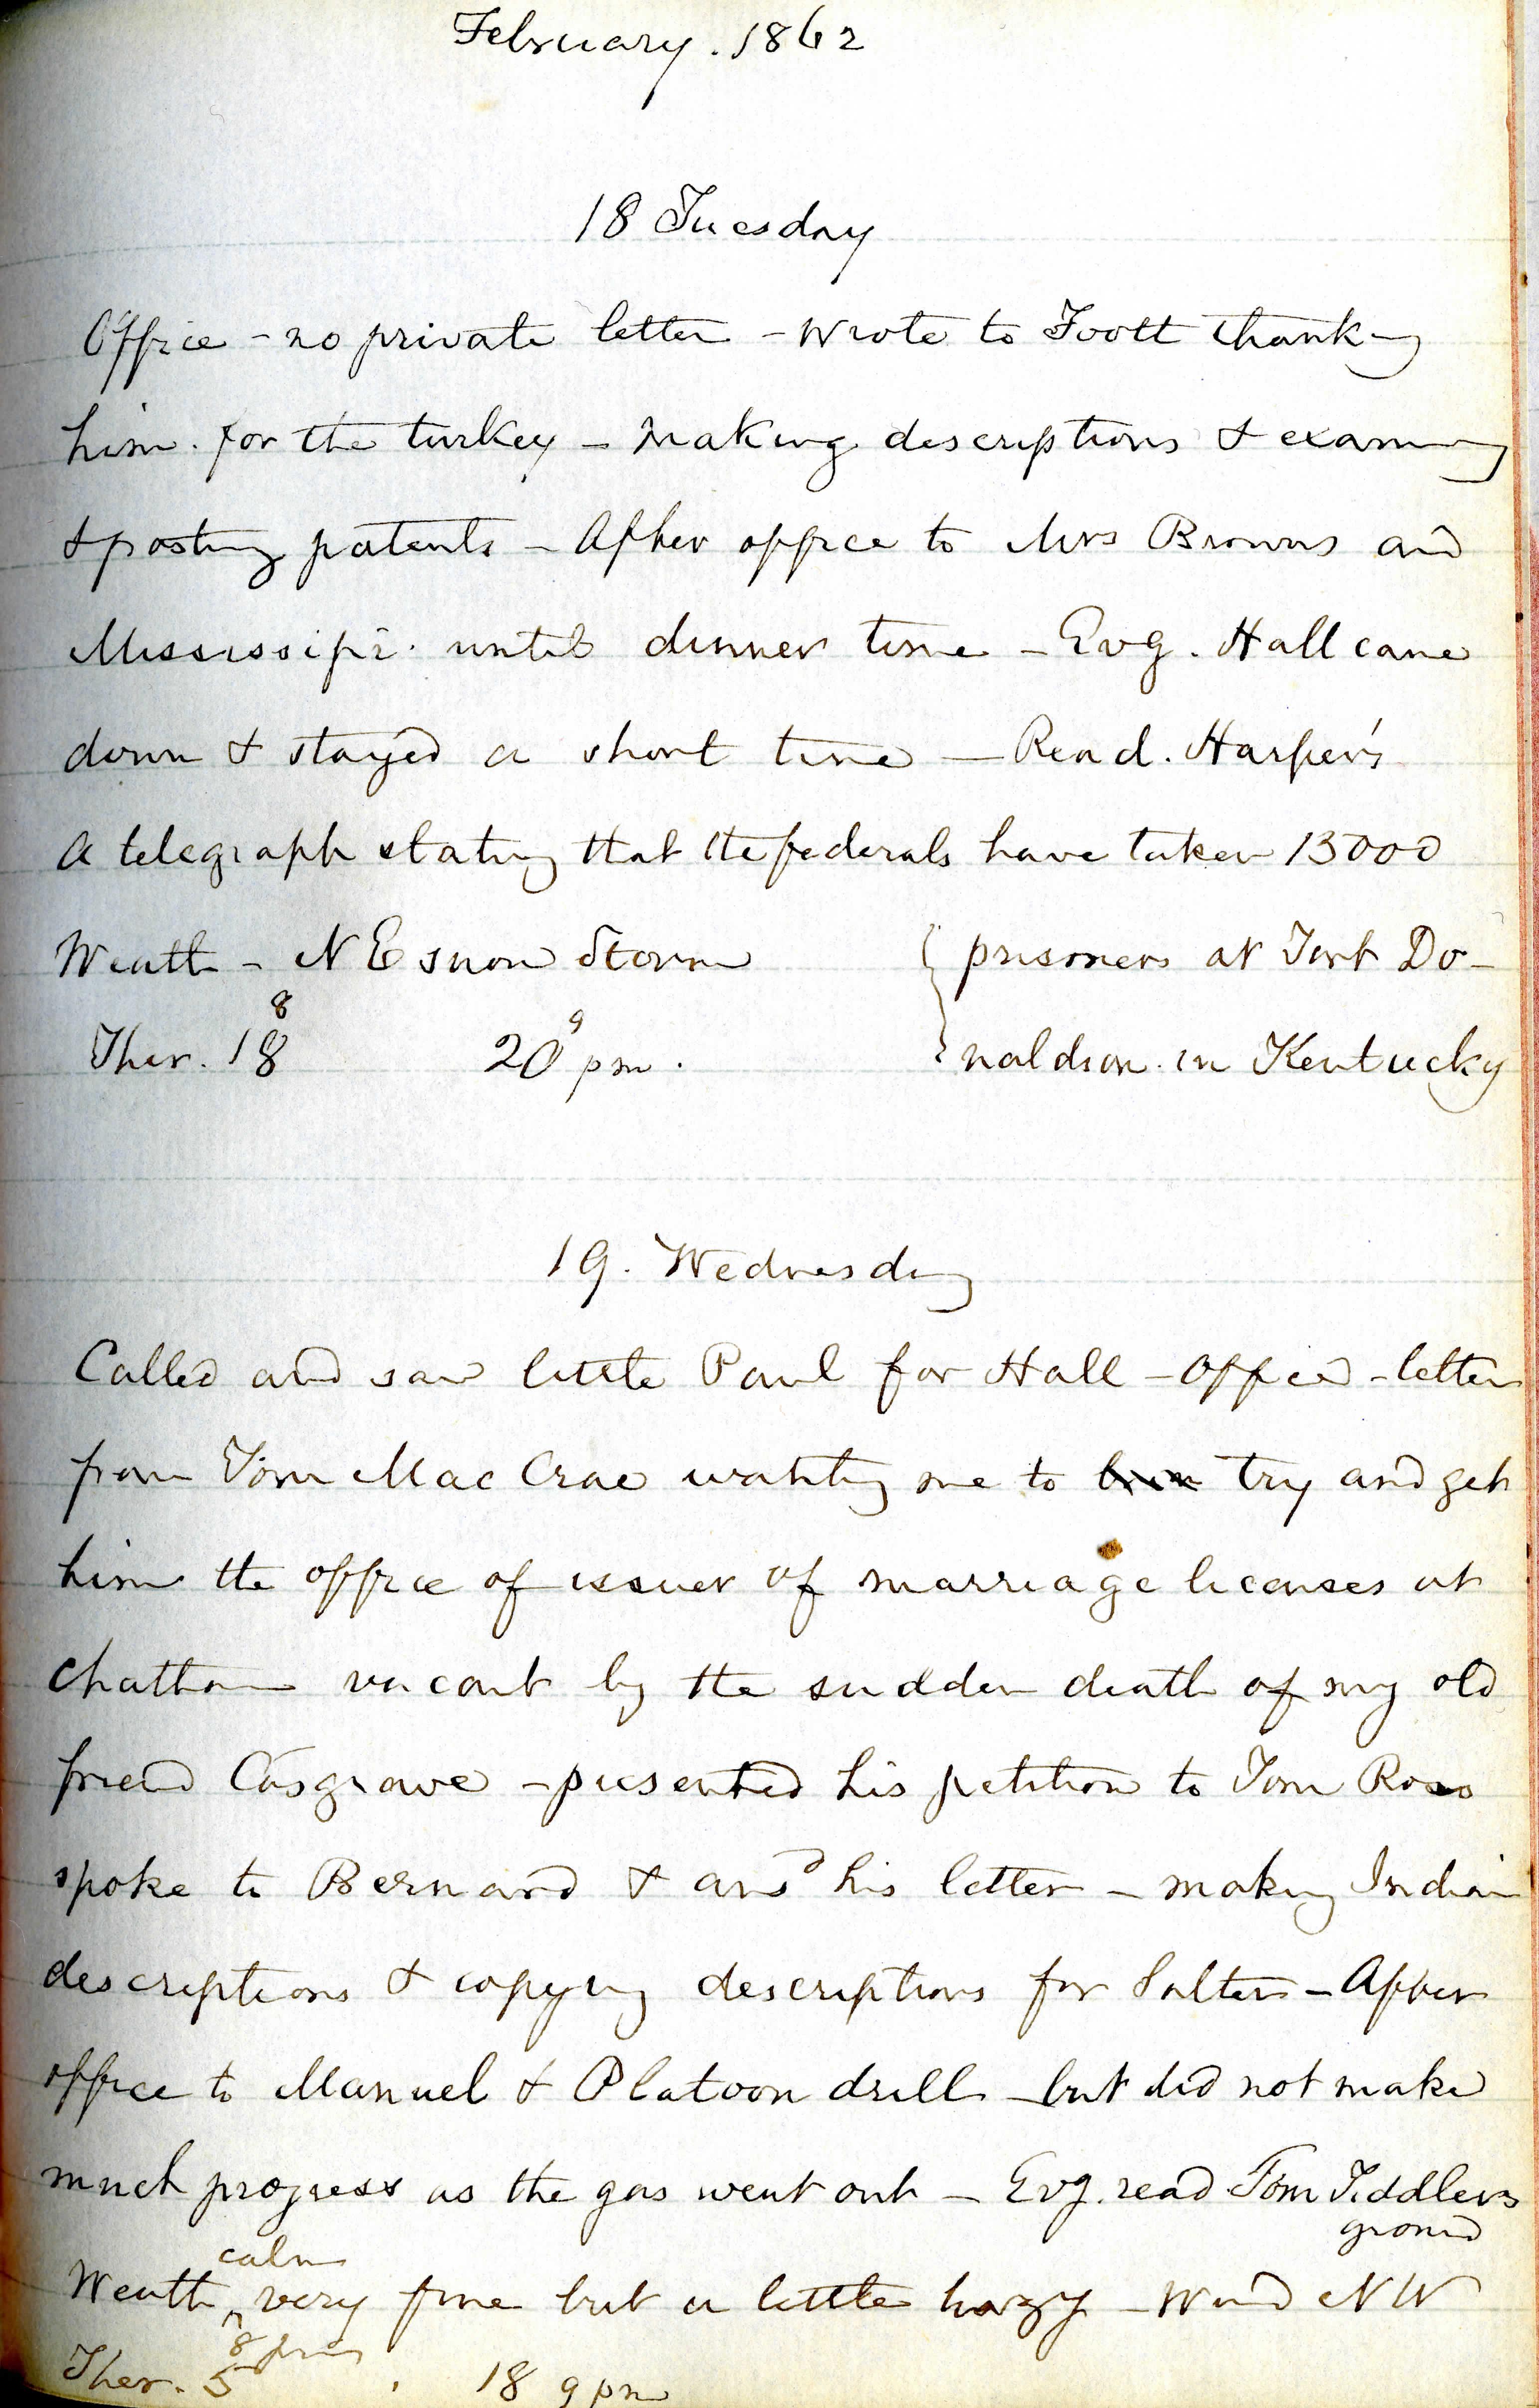 February. 1862
18 Tuesday
Office - no private letter - wrote to Foott thanking
him for the turkey - making descriptions & examing
& posting patents - After office to Mrs Browns and
Mississipi until dinner time - Evg. Hall came
down & stayed a short time - Read. Harper's
A telegraph stating that the federals have taken 15000
Weath - N E snow storm { prisoners at Fort Do-
Ther. 18 8 20 9 pm. naldson in Kentucky
19. Wednesday
Called and saw little Paul for Hall - Office - letter
from Tom MacCrae wanting me to try and get
him the office of issuer of marriage licenses at
Chatham vacant by the sudden death of my old
friend Cosgrave - presented his petition to Tom Ross
spoke to Bernard & ansd his letter - making Indian
descriptions & copying descriptions for Salter - After
office to Manuel & Platoon drill - but did not make
much progress as the gas went out - Evg. read Tom Tiddlers
ground
Weath calm very fine but a little hazy - Wind NW
Ther. 5 8 18 9 pm